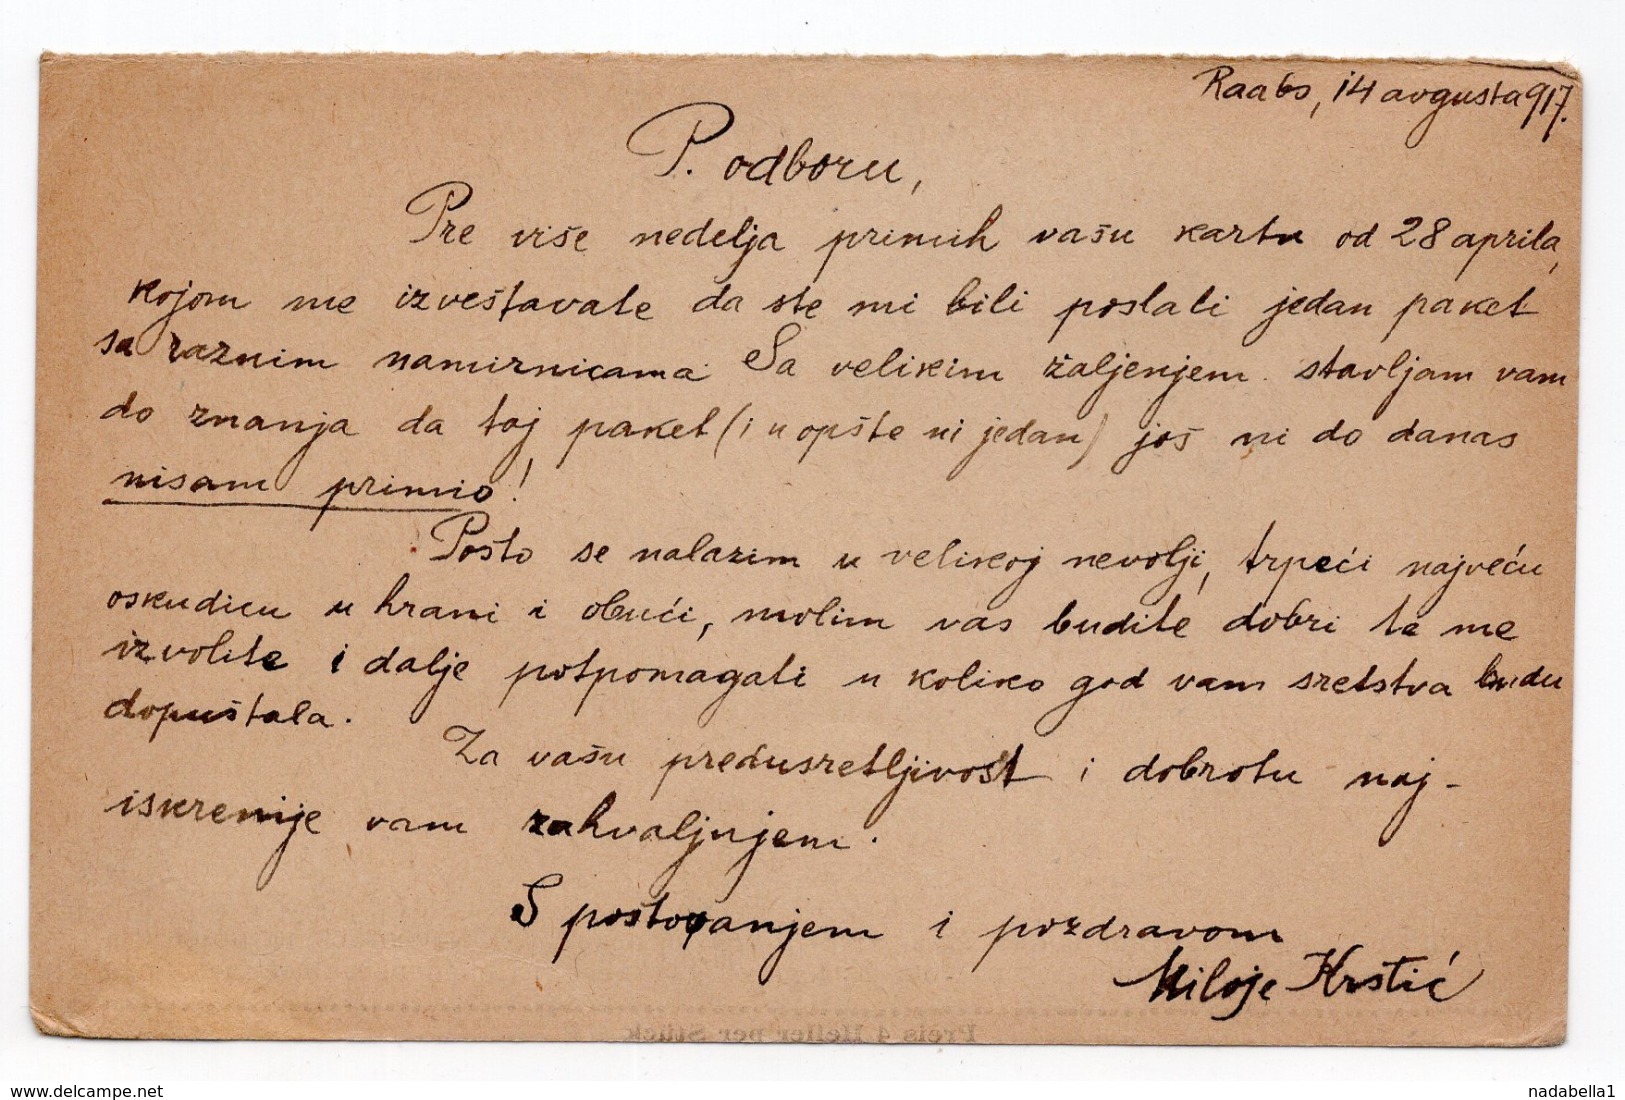 Raabs, 14 avgusta 917.
P. odboru,
Pre više nedelja primih vašu kartu od 28 aprila,
kojom me izveštavate da ste mi bili poslali jedan paket
sa raznim namirnicama. Sa velikim žaljenjem stavljam vam
do znanja da taj paket (i u opšte ni jedan) još ni do danas
nisam primio!
Pošto se nalazim u velikoj nevolji, trpeći najveću
oskudicu u hrani i obući, molim vas budite dobri te me
izvolite i dalje potpomagati u koliko god vam sretstva budu
dopuštala.
Za vašu predusretljivost i dobrotu naj-
iskrenije vam zahvaljujem.
S poštovanjem i pozdravom
Miloje Krstić
Preis 4 Heller per Stück
delcampe.net
nadabella1